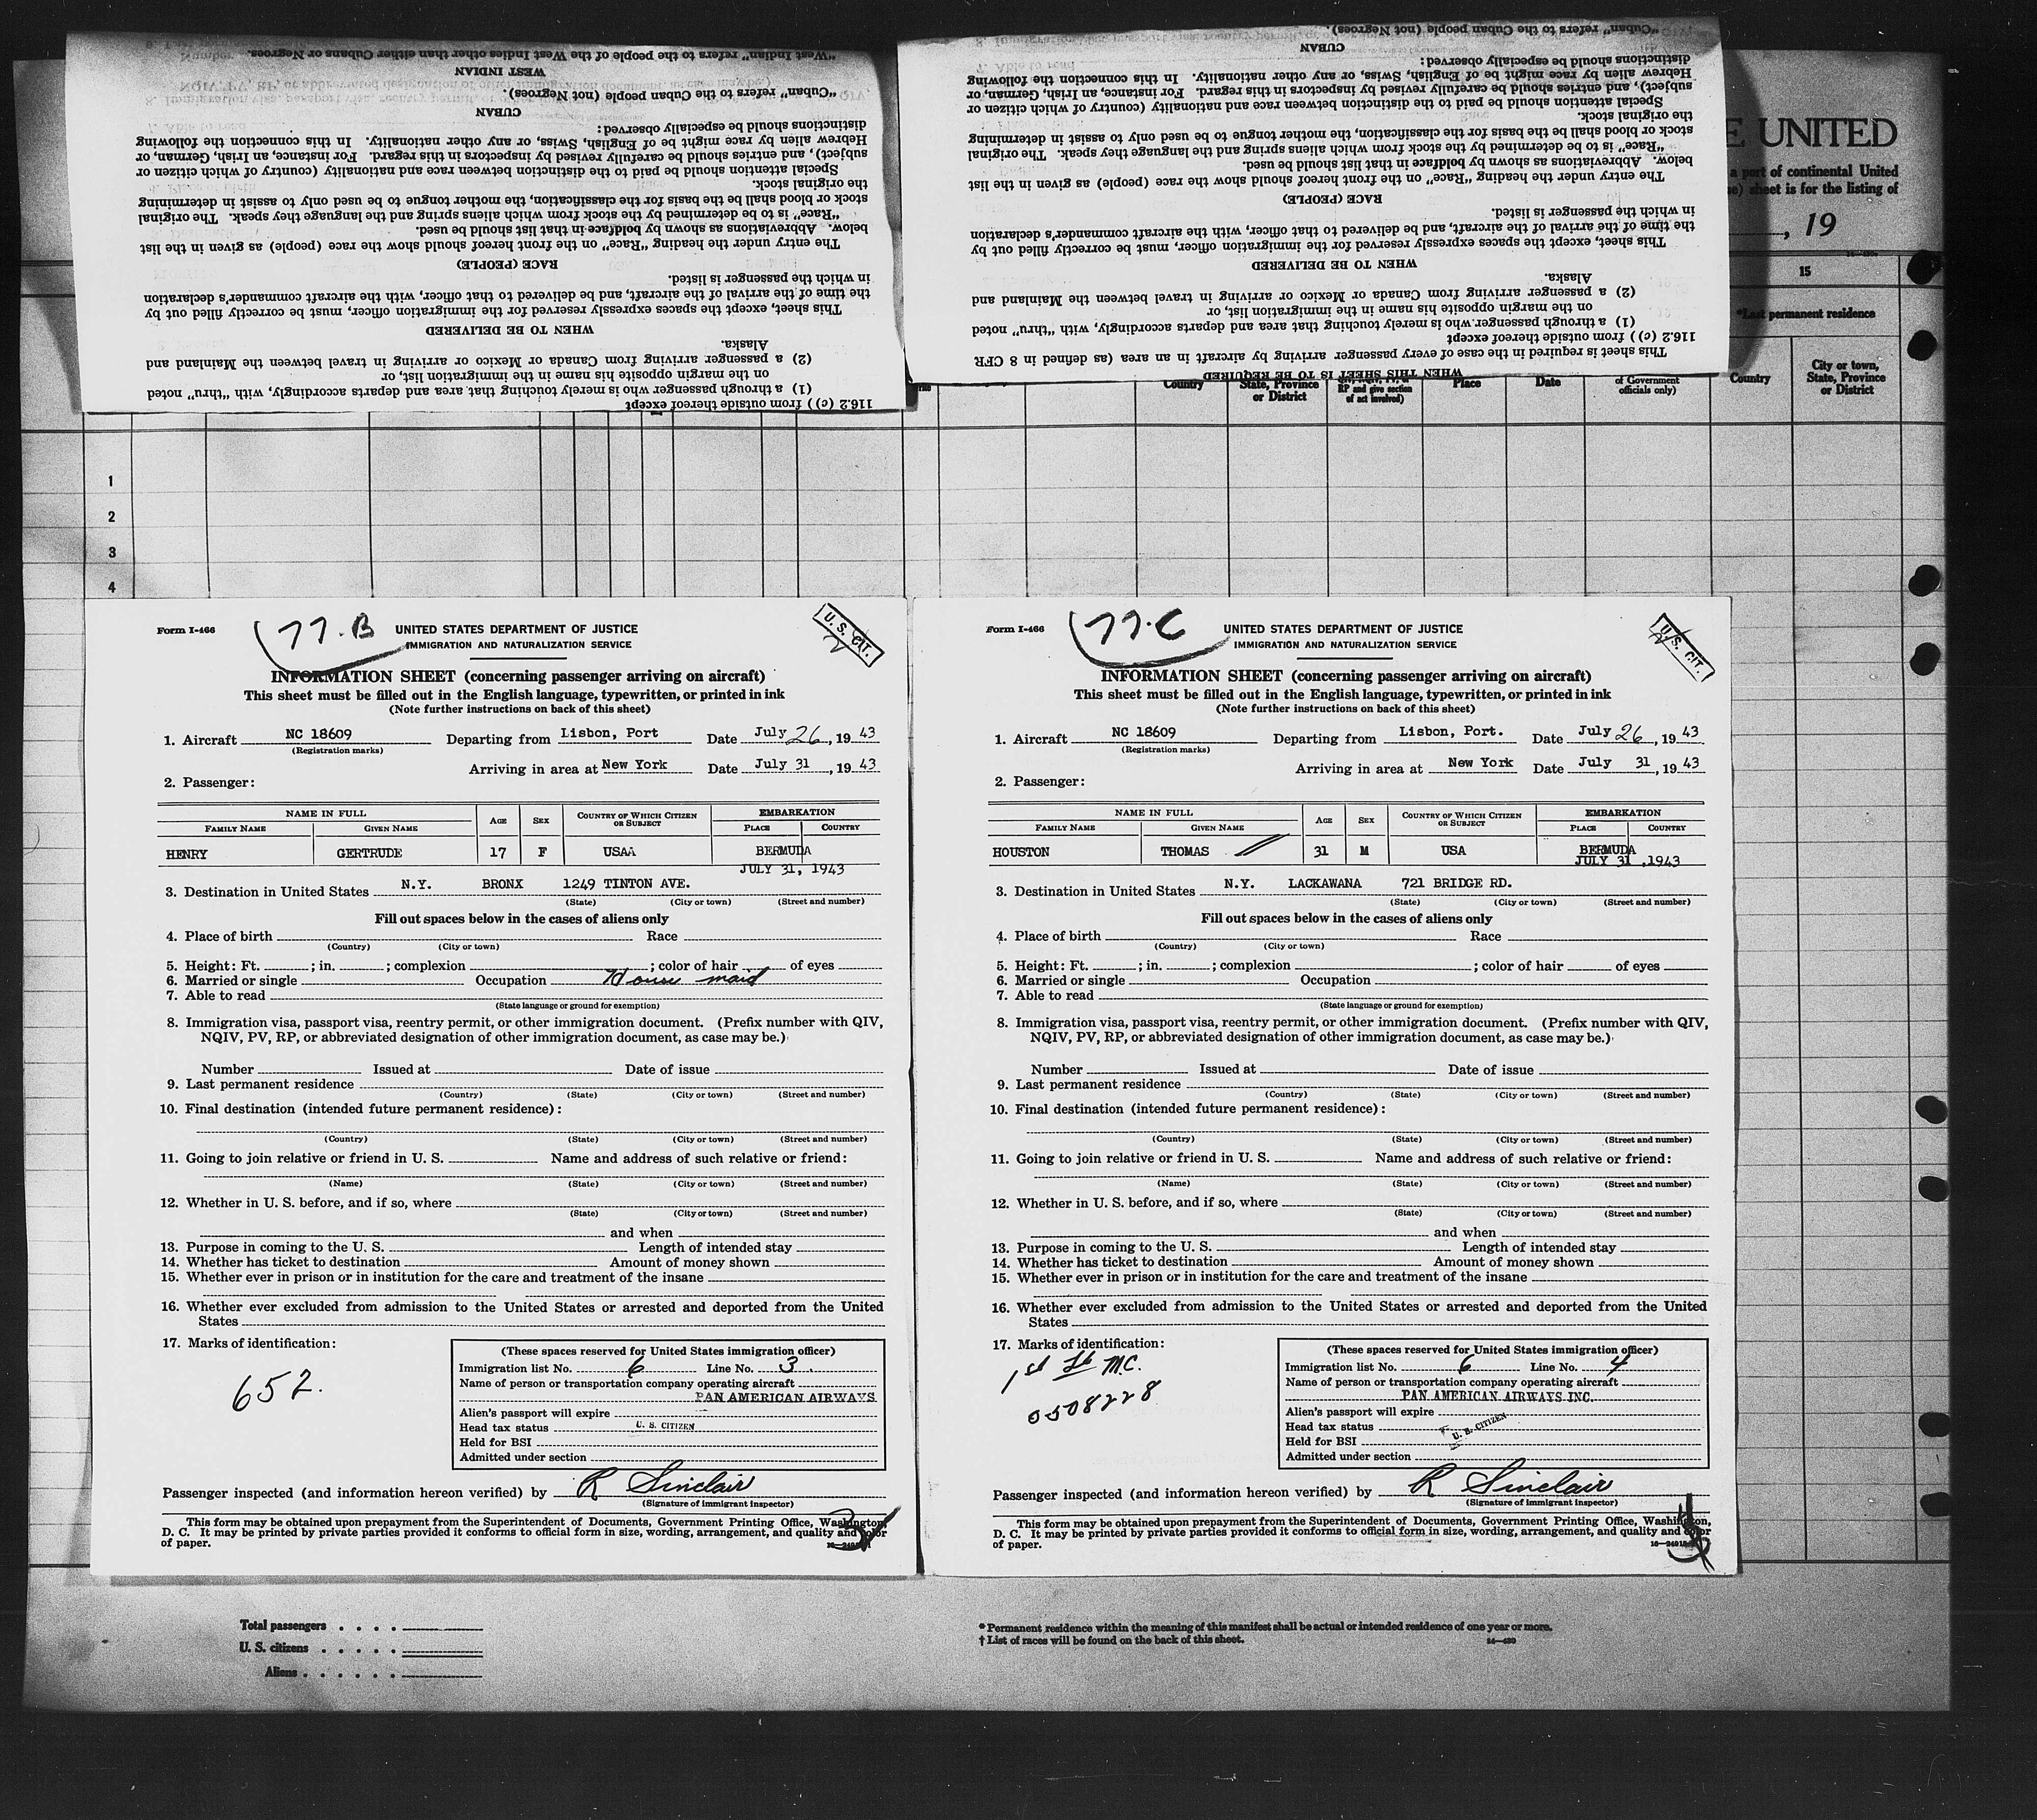 "West Indian" refers to the people of the West Indies other than either Cubans or Negroes.
WEST INDIAN
"Cuban" refers to the Cuban people (not Negroes).
CUBAN
distinctions should be especially observed:
Hebrew alien by race might be of English, Swiss, or any other nationality. In this connection the following
subject), and entries should be carefully revised by inspectors in this regard. For instance, an Irish, German, or
Special attention should be paid to the distinction between race and nationality (country of which citizen or
the original stock.
stock or blood shall be the basis for the classification, the mother tongue to be used only to assist in determining
"Race" is to be determined by the stock from which aliens spring and the language they speak. The original
below. Abbreviations as shown by boldface in that list should be used.
The entry under the heading "Race" on the front hereof should show the race (people) as given in the list
RACE (PEOPLE)
in which the passenger is listed.
the time of the arrival of the aircraft, and be delivered to that officer, with the aircraft commander's declaration
This sheet, except the spaces expressly reserved for the immigration officer, must be correctly filled out by
WHEN TO BE DELIVERED
Alaska.
(2) a passenger arriving from Canada or Mexico or arriving in travel between the Mainland and
on the margin opposite his name in the immigration list, or
(1) a through passenger who is merely touching that area and departs accordingly, with "thru" noted
116.2 (c) ) from outside thereof except
"Cuban" refers to the Cuban people (not Negroes).
CUBAN
distinctions should be especially observed:
Hebrew alien by race might be of English, Swiss, or any other nationality. In this connection the following
subject), and entries should be carefully revised by inspectors in this regard. For instance, an Irish, German, or
Special attention should be paid to the distinction between race and nationality (country of which citizen or
the original stock.
stock or blood shall be the basis for the classification, the mother tongue to be used only to assist in determining
"Race" is to be determined by the stock from which aliens spring and the language they speak. The original
below. Abbreviations as shown by boldface in that list should be used.
The entry under the heading "Race" on the front hereof should show the race (people) as given in the list
RACE (PEOPLE)
in which the passenger is listed.
the time of the arrival of the aircraft, and be delivered to that officer, with the aircraft commander's declaration
This sheet, except the spaces expressly reserved for the immigration officer, must be correctly filled out by
WHEN TO BE DELIVERED
Alaska.
(2) a passenger arriving from Canada or Mexico or arriving in travel between the Mainland and
on the margin opposite his name in the immigration list, or
(1) a through passenger who is merely touching that area and departs accordingly, with "thru" noted
116.2 (c) ) from outside thereof except
This sheet is required in the case of every passenger arriving by aircraft in an area (as defined in 8 CFR
WHEN THIS SHEET IS TO BE REQUIRED
E UNITED
a part of continental United
sheet is for the listing of
, 19
15
*Last permanent residence
Country State, Province or District RP and give section of act involved) Place Date of Government officials only) Country City or town, State, Province or District
1
2
3
4
Form I-466
77-B
U. S. CIT.
UNITED STATES DEPARTMENT OF JUSTICE
IMMIGRATION AND NATURALIZATION SERVICE
INFORMATION SHEET (concerning passenger arriving on aircraft)
This sheet must be filled out in the English language, typewritten, or printed in ink
(Note further instructions on back of this sheet)
1. Aircraft NC 18609 Departing from Lisbon, Port Date July 26, 19 43
(Registration marks)
Arriving in area at New York Date July 31, 19 43
2. Passenger:
NAME IN FULL AGE SEX COUNTRY OF WHICH CITIZEN OR SUBJECT EMBARKATION
FAMILY NAME GIVEN NAME PLACE COUNTRY
HENRY GERTRUDE 17 F USAA BERMUDA
JULY 31, 1943
3. Destination in United States N.Y. BRONX 1249 TINTON AVE.
(State) (City or town) (Street and number)
Fill out spaces below in the cases of aliens only
4. Place of birth Race
(Country) (City or town)
5. Height: Ft. ; in. ; complexion ; color of hair of eyes
6. Married or single Occupation House maid
7. Able to read
(State language or ground for exemption)
8. Immigration visa, passport visa, reentry permit, or other immigration document. (Prefix number with QIV,
NQIV, PV, RP, or abbreviated designation of other immigration document, as case may be.)
Number Issued at Date of issue
9. Last permanent residence
(Country) (State) (City or town) (Street and number)
10. Final destination (intended future permanent residence):
(Country) (State) (City or town) (Street and number)
11. Going to join relative or friend in U. S. Name and address of such relative or friend:
(Name) (State) (City or town) (Street and number)
12. Whether in U. S. before, and if so, where
(State) (City or town) (Street and number)
and when
13. Purpose in coming to the U. S. Length of intended stay
14. Whether has ticket to destination Amount of money shown
15. Whether ever in prison or in institution for the care and treatment of the insane
16. Whether ever excluded from admission to the United States or arrested and deported from the United
States
17. Marks of identification:
652.
(These spaces reserved for United States immigration officer)
Immigration list No. 6 Line No. 3.
Name of person or transportation company operating aircraft
PAN AMERICAN AIRWAYS
Alien's passport will expire
Head tax status U. S. CITIZEN
Held for BSI
Admitted under section
Passenger inspected (and information hereon verified) by R Sinclair
(Signature of immigrant inspector)
This form may be obtained upon prepayment from the Superintendent of Documents, Government Printing Office, Washington,
D. C. It may be printed by private parties provided it conforms to official form in size, wording, arrangement, and quality and color
of paper.
3
Form I-466
77-C
U. S. CIT.
UNITED STATES DEPARTMENT OF JUSTICE
IMMIGRATION AND NATURALIZATION SERVICE
INFORMATION SHEET (concerning passenger arriving on aircraft)
This sheet must be filled out in the English language, typewritten, or printed in ink
(Note further instructions on back of this sheet)
1. Aircraft NC 18609 Departing from Lisbon, Port. Date July 26, 19 43
(Registration marks)
Arriving in area at New York Date July 31, 19 43
2. Passenger:
NAME IN FULL AGE SEX COUNTRY OF WHICH CITIZEN OR SUBJECT EMBARKATION
FAMILY NAME GIVEN NAME PLACE COUNTRY
HOUSTON THOMAS 31 M USA BERMUDA
JULY 31 ,1943
3. Destination in United States N.Y. LACKAWANA 721 BRIDGE RD.
(State) (City or town) (Street and number)
Fill out spaces below in the cases of aliens only
4. Place of birth Race
(Country) (City or town)
5. Height: Ft. ; in. ; complexion ; color of hair of eyes
6. Married or single Occupation
7. Able to read
(State language or ground for exemption)
8. Immigration visa, passport visa, reentry permit, or other immigration document. (Prefix number with QIV,
NQIV, PV, RP, or abbreviated designation of other immigration document, as case may be.)
Number Issued at Date of issue
9. Last permanent residence
(Country) (State) (City or town) (Street and number)
10. Final destination (intended future permanent residence):
(Country) (State) (City or town) (Street and number)
11. Going to join relative or friend in U. S. Name and address of such relative or friend:
(Name) (State) (City or town) (Street and number)
12. Whether in U. S. before, and if so, where
(State) (City or town) (Street and number)
and when
13. Purpose in coming to the U. S. Length of intended stay
14. Whether has ticket to destination Amount of money shown
15. Whether ever in prison or in institution for the care and treatment of the insane
16. Whether ever excluded from admission to the United States or arrested and deported from the United
States
17. Marks of identification:
1st Lt M.C.
0508228
(These spaces reserved for United States immigration officer)
Immigration list No. 6 Line No. 4
Name of person or transportation company operating aircraft
PAN AMERICAN AIRWAYS INC.
Alien's passport will expire
Head tax status U. S. CITIZEN
Held for BSI
Admitted under section
Passenger inspected (and information hereon verified) by R Sinclair
(Signature of immigrant inspector)
This form may be obtained upon prepayment from the Superintendent of Documents, Government Printing Office, Washington,
D. C. It may be printed by private parties provided it conforms to official form in size, wording, arrangement, and quality and color
of paper.
Total passengers . . . .
U. S. citizens . . . . .
Aliens . . . . . .
* Permanent residence within the meaning of this manifest shall be actual or intended residence of one year or more.
† List of races will be found on the back of this sheet.